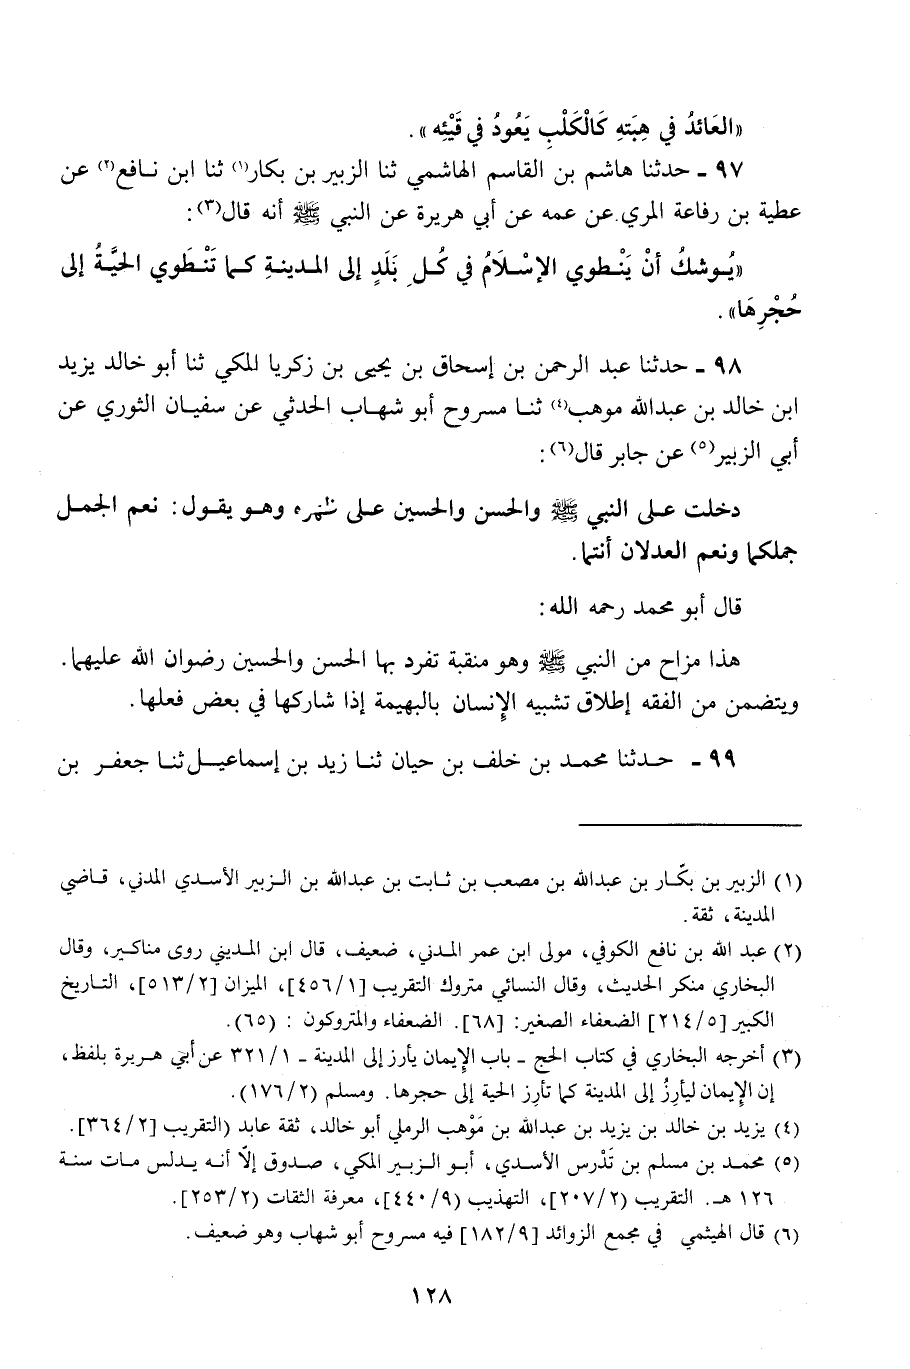 «العَائدُ في هِبَتهِ كَالْكَلْبِ يَعُودُ في قَيْئِه».
٩٧ ـ حدثنا هاشم بن القاسم الهاشمي ثنا الزبير بن بكار(١) ثنا ابن نافع(٢) عن
عطية بن رفاعة المري عن عمه عن أبي هريرة عن النبي ﷺ أنه قال(٣):
«يُوشكُ أنْ يَنْطوي الإسْلَامُ في كُلِ بَلَدٍ إلى المدينةِ كما تَنْطَوي الحيَّةُ إلى
حُجْرِهَا».
٩٨ ـ حدثنا عبد الرحمن بن إسحاق بن يحيى بن زكريا المكي ثنا أبو خالد يزيد
ابن خالد بن عبدالله موهب(٤) ثنا مسروح أبو شهاب الحدثي عن سفيان الثوري عن
أبي الزبير(٥) عن جابر قال(٦):
دخلت على النبي ﷺ والحسن والحسين على ظهره وهو يقول: نعم الجمل
جملكما ونعم العدلان أنتما.
قال أبو محمد رحمه الله:
هذا مزاح من النبي ﷺ وهو منقبة تفرد بها الحسن والحسين رضوان الله عليهما.
ويتضمن من الفقه إطلاق تشبيه الإنسان بالبهيمة إذا شاركها في بعض فعلها.
٩٩ ـ حدثنا محمد بن خلف بن حيان ثنا زيد بن إسماعيل ثنا جعفر بن
(١) الزبير بن بكّار بن عبدالله بن مصعب بن ثابت بن عبدالله بن الزبير الأسدي المدني، قاضي
المدينة، ثقة.
(٢) عبد الله بن نافع الكوفي، مولى ابن عمر المدني، ضعيف، قال ابن المديني روى مناكير، وقال
البخاري منكر الحديث، وقال النسائي متروك التقريب [٤٥٦/١]، الميزان [٥١٣/٢]، التاريخ
الكبير [٢١٤/٥] الضعفاء الصغير: [٦٨]. الضعفاء والمتروكون : (٦٥).
(٣) أخرجه البخاري في كتاب الحج ـ باب الإيمان يأرز إلى المدينة ـ ٣٢١/١ عن أبي هريرة بلفظ،
إن الإيمان ليأرِزُ إلى المدينة كما تأرِز الحية إلى حجرها. ومسلم (١٧٦/٢).
(٤) يزيد بن خالد بن يزيد بن عبدالله بن مَوْهب الرملي أبو خالد، ثقة عابد (التقريب [٣٦٤/٢].
(٥) محمد بن مسلم بن تَدْرس الأسدي، أبو الزبير المكي، صدوق إلّا أنه يدلس مات سنة
١٢٦ هـ. التقريب (٢٠٧/٢]، التهذيب (٤٤٠/٩]، معرفة الثقات (٢٥٣/٢].
(٦) قال الهيثمي في مجمع الزوائد [١٨٢/٩] فيه مسروح أبو شهاب وهو ضعيف.
١٢٨